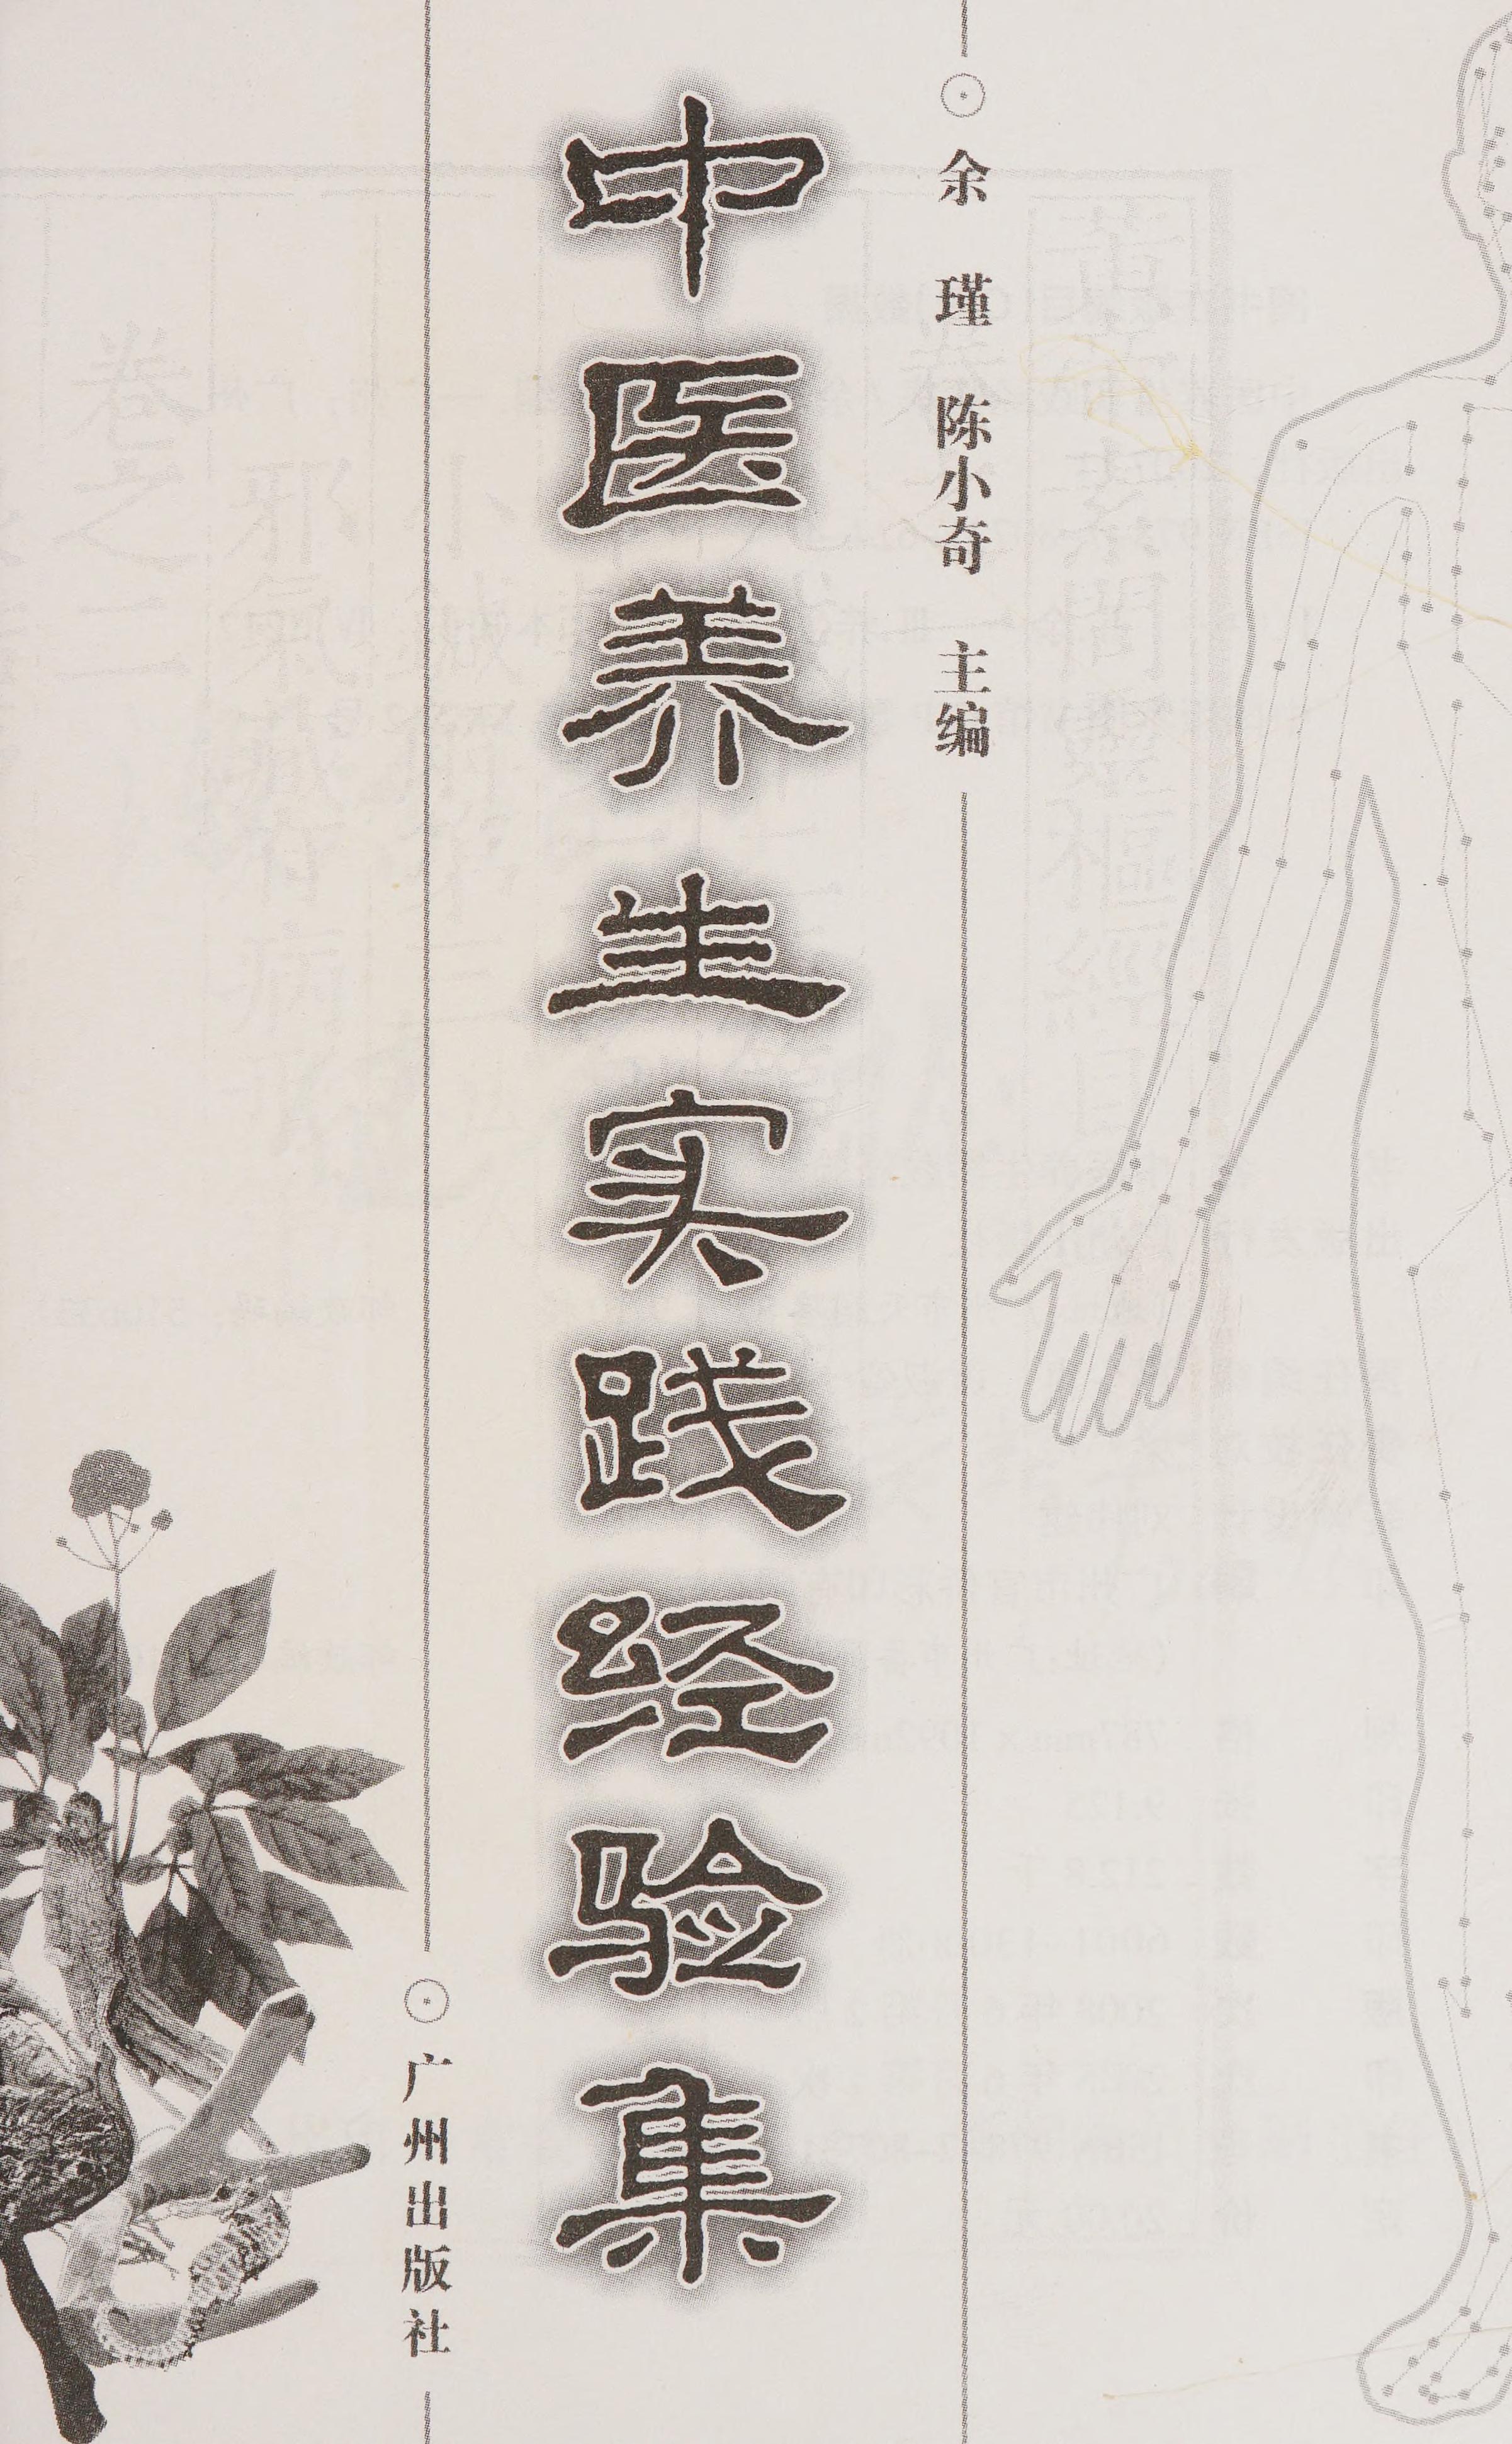 余 瑾 陈小奇 主编
中医养生实践经验集
广州出版社